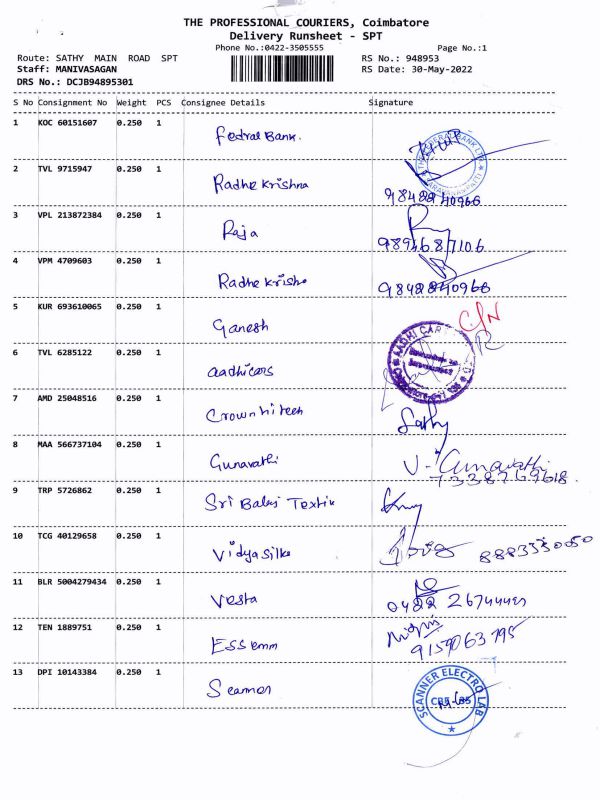 THE PROFESSIONAL COURIERS, Coimbatore
Delivery Runsheet - SPT
Phone No.:0422-3505555 Page No.:1
Route: SATHY MAIN ROAD SPT RS No.: 948953
Staff: MANIVASAGAN RS Date: 30-May-2022
DRS No.: DCJB94895301
S No Consignment No Weight PCS Consignee Details Signature
1 KOC 60151607 0.250 1 Fedral Bank.
2 TVL 9715947 0.250 1 Radhe Krishna
9842240966
3 VPL 213872384 0.250 1 Raja
9894687106
4 VPM 4709603 0.250 1 Radhe Krish
9842240966
5 KUR 693610065 0.250 1 Ganesh C/N
6 TVL 6285122 0.250 1 aadhicars AADHI CAR
7 AMD 25048516 0.250 1 Crown hitech Sathy
8 MAA 566737104 0.250 1 Gunavathi V. Gunavathi
7338769618
9 TRP 5726862 0.250 1 Sri Balaji Textile
10 TCG 40129658 0.250 1 Vidya Silks 8883330050
11 BLR 5004279434 0.250 1 Vesta
0422 2674449
12 TEN 1889751 0.250 1 Essemm
9159063795
13 DPI 10143384 0.250 1 Scanner
SCANNER ELECTRO LAB
CBE-35